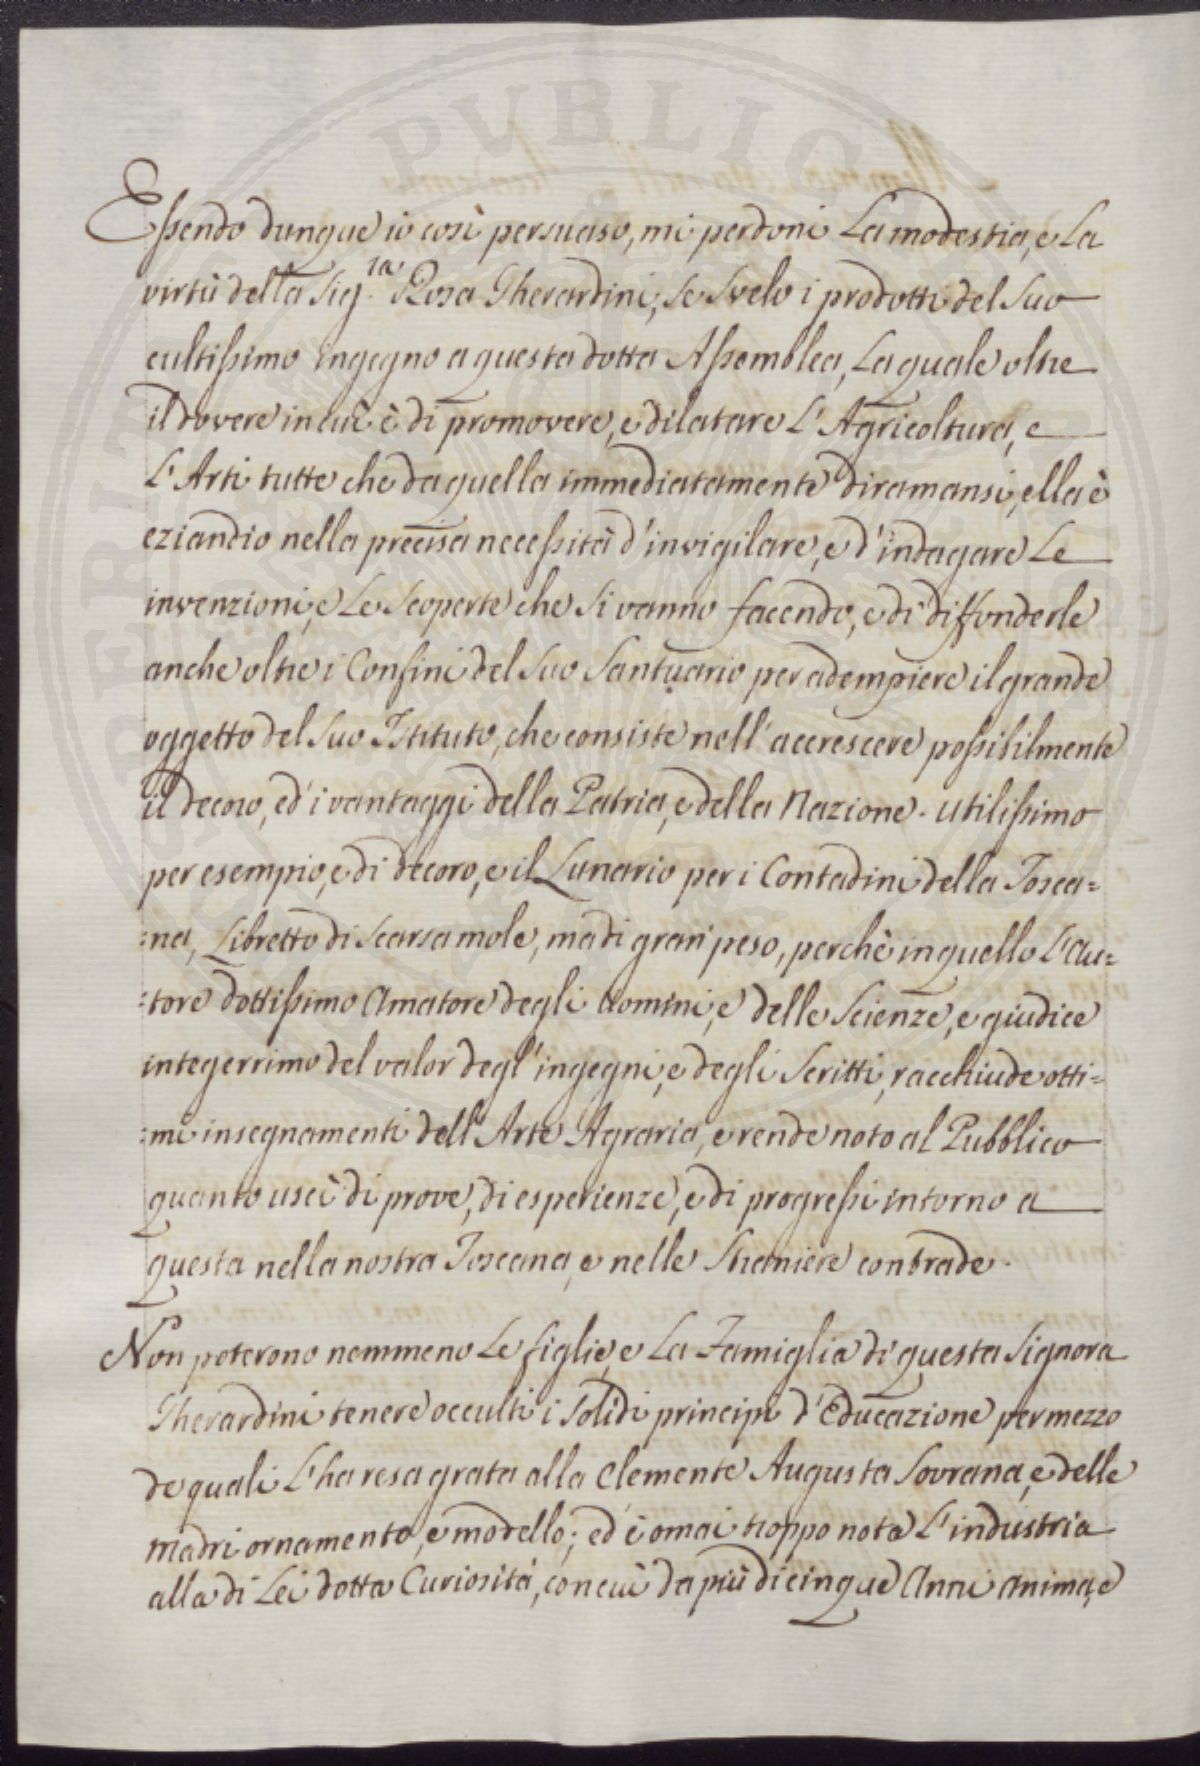 Essendo dunque io così persuaso, mi perdoni La modestia, e La
virtù della Sig.ra Rosa Gherardini, se svelo i prodotti del Suo
cultissimo ingegno a questa dotta Assemblea, La quale oltre
il dovere in cui è di promovere, e dilatare L'Agricoltura, e
L'Arti tutte che da quella immediatamente diramansi, ella è
eziandio nella precisa necessità d'invigilare, e d'indagare Le
invenzioni, e Le Scoperte che Si vanno facendo, e di diffonderle
anche oltre i Confini del Suo Santuario per adempiere il grande
oggetto del Suo Istituto, che consiste nell'accrescere possibilmente
il decoro, ed i vantaggi della Patria, e della Nazione. Utilissimo
per esempio, e di decoro, e il Lunario per i Contadini della Tosca=
=na, Libretto di Scarsa mole, ma di gran peso, perchè in quello L'Au=
=tore dottissimo Amatore degli Uomini, e delle Scienze, e giudice
integerrimo del valor degl'ingegni, e degli Scritti, racchiude otti=
=mi insegnamenti dell'Arte Agraria, e rende noto al Pubblico
quanto uscì di prove, di esperienze, e di progressi intorno a
questa nella nostra Toscana, e nelle Straniere contrade.
Non poterono nemmeno Le figlie, e La Famiglia di questa Signora
Gherardini tenere occulti i Solidi principi d'Educazione per mezzo
de quali L'ha resa grata alla Clemente Augusta Sovrana, e delle
Madri ornamento, e modello; ed è omai troppo nota L'industria
alla di Lei dotta Curiosità, con cui da più di cinque Anni anima, e
PUBLICA